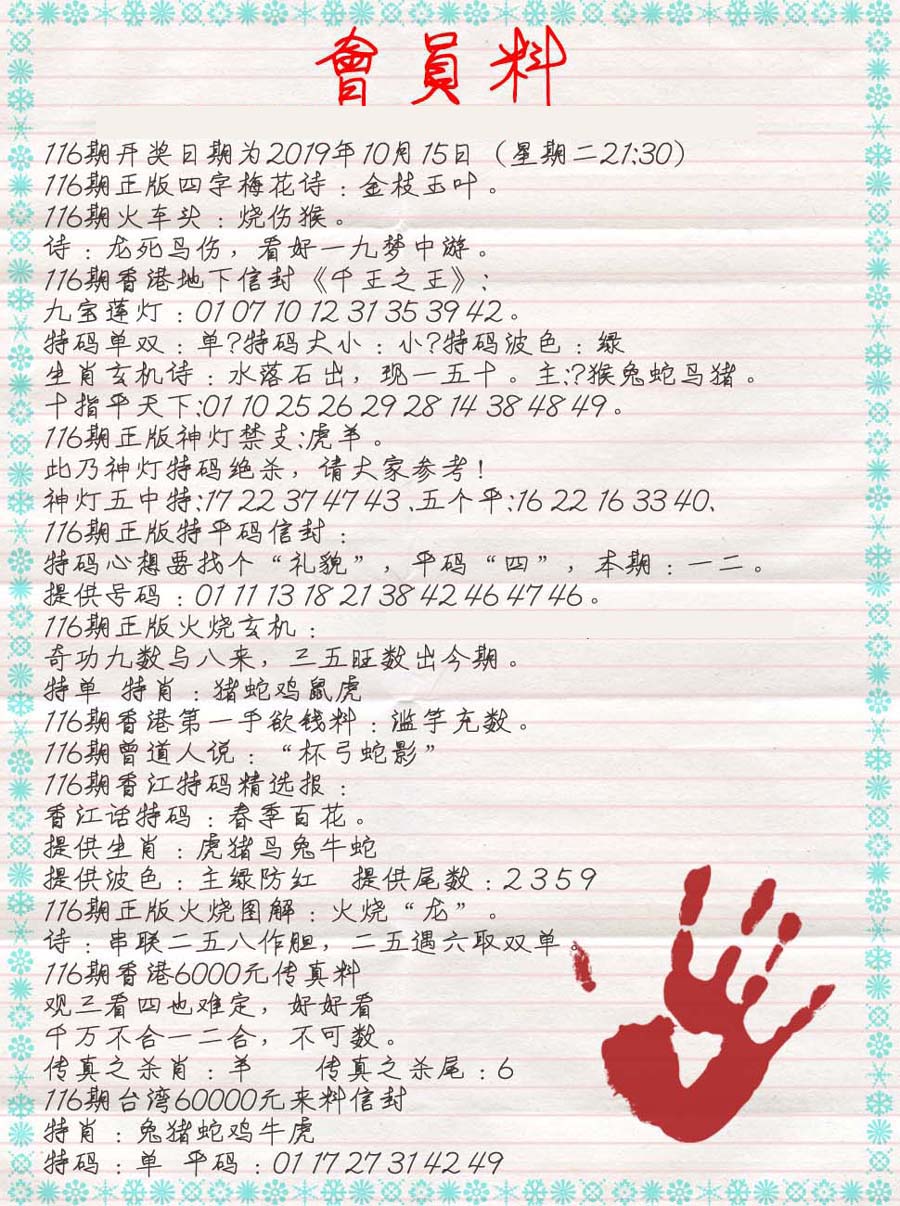 會員料
116期开奖日期为2019年10月15日（星期二21:30）
116期正版四字梅花诗：金枝玉叶。
116期火车头：烧伤猴。
诗：龙死鸟伤，看好一九梦中游。
116期香港地下信封《千王之王》：
九宝莲灯：01 07 10 12 31 35 39 42。
特码单双：单?特码大小：小?特码波色：绿
生肖玄机诗：水落石出，现一五十。主:?猴兔蛇鸟猪。
十指平天下:01 10 25 26 29 28 14 38 48 49。
116期正版神灯禁支:虎羊。
此乃神灯特码绝杀，请大家参考!
神灯五中特:17 22 37 47 43 、五个平:16 22 16 33 40、
116期正版特平码信封：
特码心想要找个“礼貌”，平码“四”，本期：一二。
提供号码：01 11 13 18 21 38 42 46 47 46。
116期正版火烧玄机：
奇功九数与八来，三五旺数出今期。
特单 特肖：猪蛇鸡鼠虎
116期香港第一手欲钱料：滥竽充数。
116期曾道人说：“杯弓蛇影”
116期香江特码精选报：
香江话特码：春季百花。
提供生肖：虎猪鸟兔牛蛇
提供波色：主绿防红 提供尾数：2 3 5 9
116期正版火烧图解：火烧“龙”。
诗：串联二五八作胆，二五遇六取双单。
116期香港6000元传真料
观三看四也难定，好好看
千万不合一二合，不可数。
传真之杀肖：羊 传真之杀尾：6
116期台湾60000元来料信封
特肖：兔猪蛇鸡牛虎
特码：单 平码：01 17 27 31 42 49